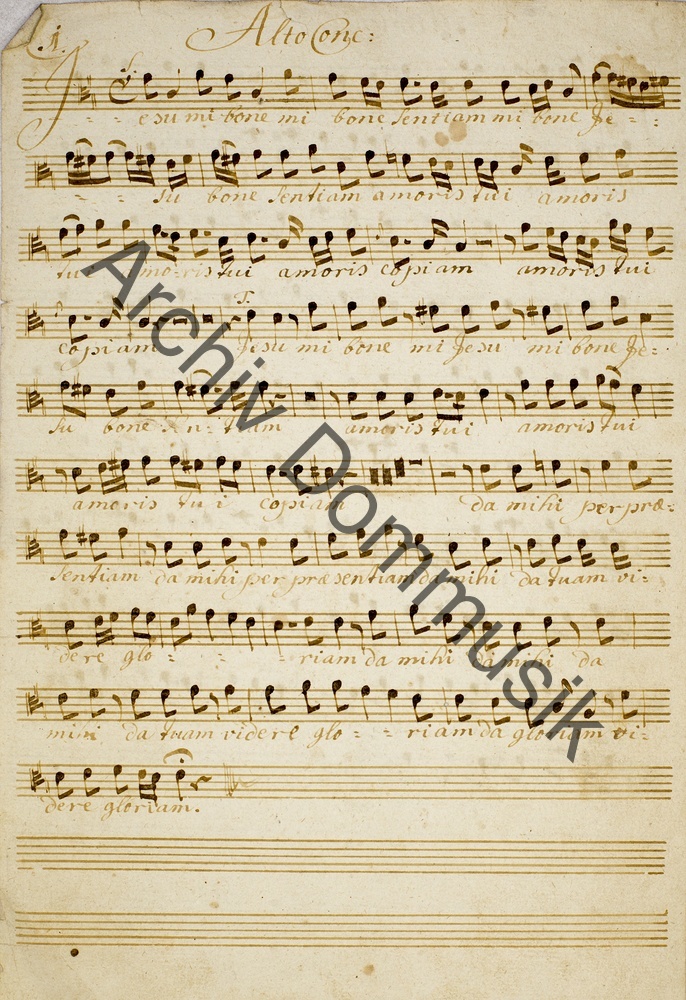 1.
Alto Conc:
S.
Jesu mi bone mi bone sentiam mi bone Je-
su bone sentiam amoris tui amoris
tui amoris tui amoris copiam amoris tui
T.
copiam Jesu mi bone mi Jesu mi bone Je-
su bone sentiam amoris tui amoris tui
amoris tui copiam da mihi per præ-
sentiam da mihi per præsentiam da mihi da tuam vi-
dere glo - - - riam da mihi da mihi da
mihi da tuam videre glo - - riam da gloriam vi-
dere gloriam.
Archiv Dommusik